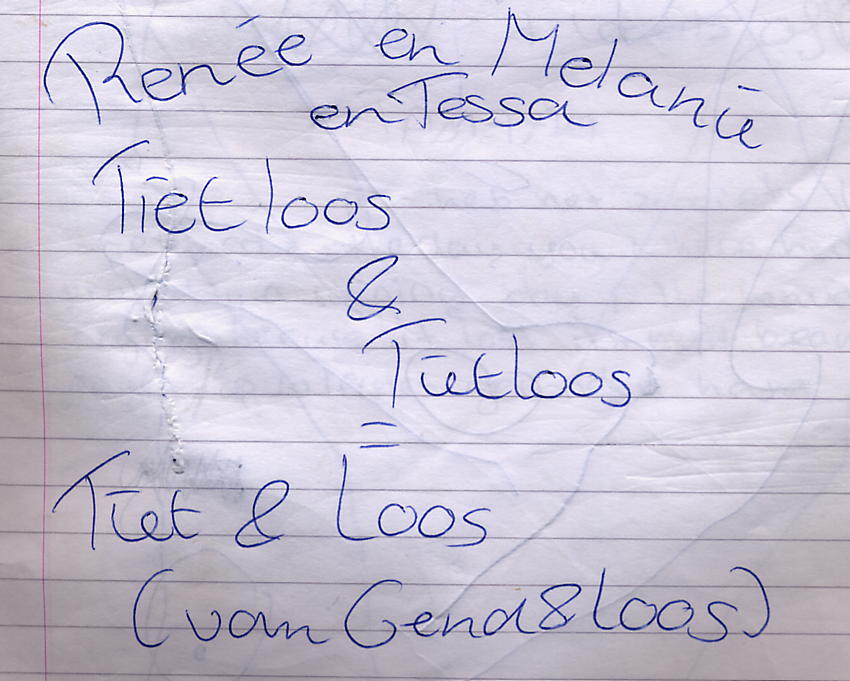 Renée en Melanie
en Tessa
Tietloos
&
Tietloos
=
Tiet & Loos
(van Gend & Loos)